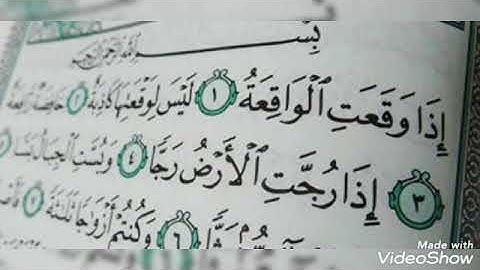 بِسْمِ ٱللَّهِ ٱلرَّحْمَٰنِ ٱلرَّحِيمِ
إِذَا وَقَعَتِ ٱلْوَاقِعَةُ ١ لَيْسَ لِوَقْعَتِهَا كَاذِبَةٌ ٢ خَافِضَةٌ رَّافِعَةٌ
٣ إِذَا رُجَّتِ ٱلْأَرْضُ رَجًّا ٤ وَبُسَّتِ ٱلْجِبَالُ بَسًّا
٦ وَكُنتُمْ أَزْوَٰجًا ثَلَٰثَةً ٧
Made with
VideoShow